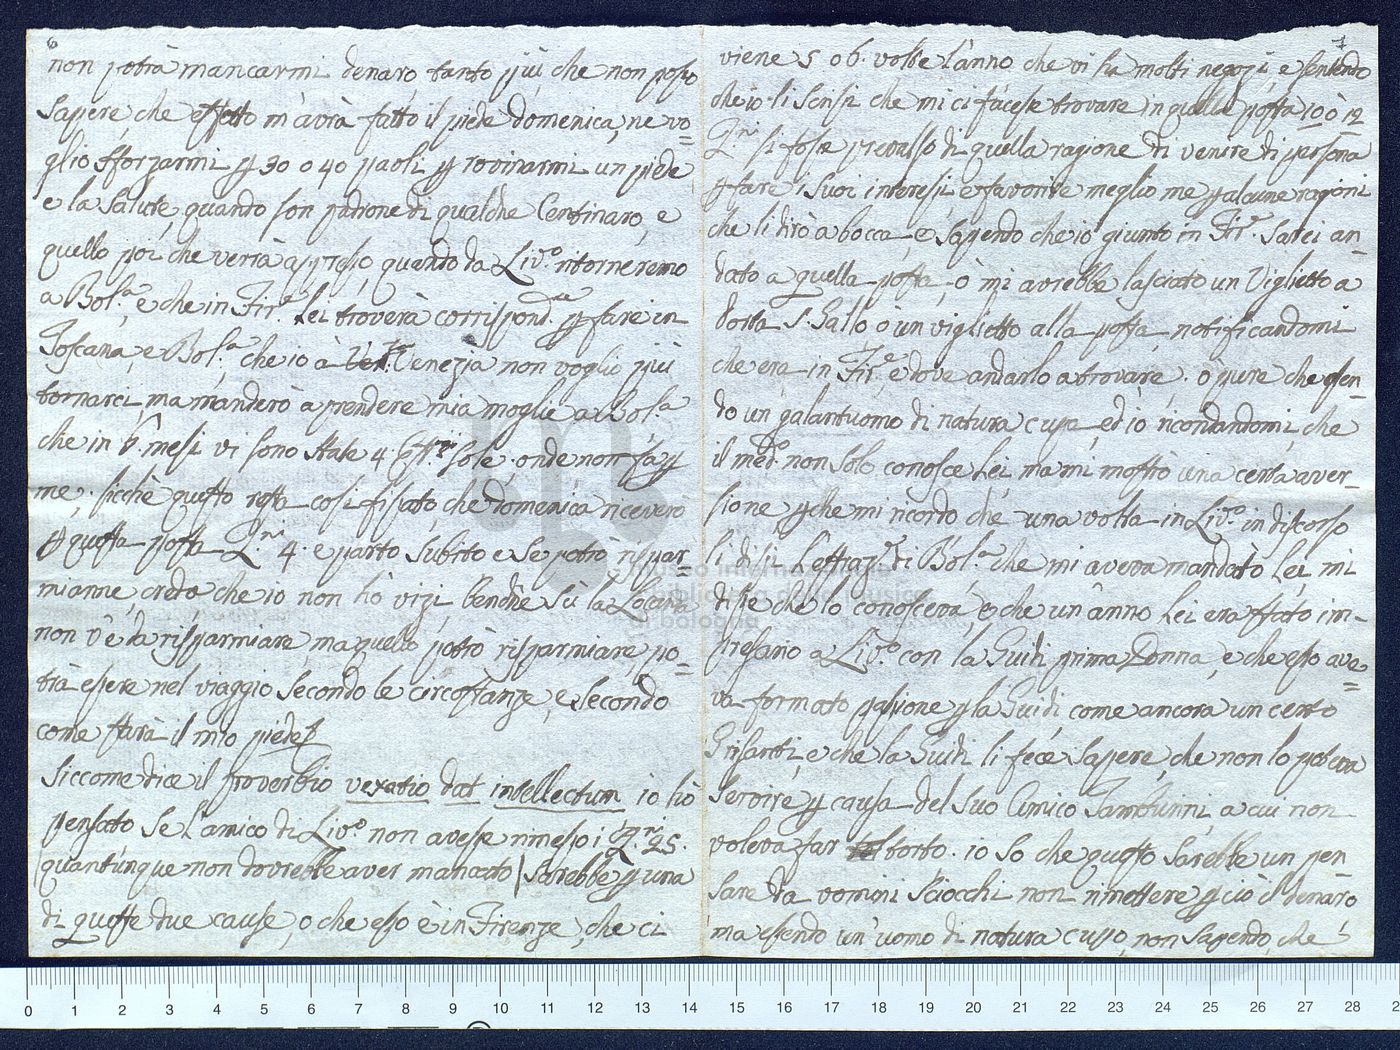 6
non potrà mancarmi denaro tanto più che non posso
sapere, che effetto m'avrà fatto il piede domenica, ne vo=
glio sforzarmi p 30 o 40 paoli p rovinarmi un piede
e la salute, quando son padrone di qualche Centinaro, e
quello poi che verrà appresso, quando da Liv.o ritorneremo
a Bol.a, e che in Fir.e Lei troverà corrispond.ze p fare in
Toscana, e Bol.a, che io à Venezia non voglio più
tornarci, ma manderò a prendere mia moglie a Bol.a
che in 6 mesi vi sono state 4 sole. onde non fà p
me. sicchè questo resta così fissato, che domenica riceverò
p questa posta Z.ni 4. e parto subito e se potrò rispar=
mianne, creda che io non hò vizi, bendhe sù la Locanda
non v'è da risparmiare, ma quello potrò risparmiare, po=
trà essere nel viaggio secondo le circostanze, e secondo
come starà il mio piede
Siccome dice il Proverbio vexatio dat intellectum io hò
pensato se l'amico di Liv.o non avesse rimesso i Z.ni 25.
(quantunque non dovrebbe aver mancato) sarebbe p una
di queste due cause, o che esso è in Firenze, che ci
7
viene 5 o 6. volte l'anno che vi ha molti negozj, e sentendo
che io li scrissi che mi ci facesse trovare in quella posta 10 ò 12
Z.ni si fosse prevalso di quella ragione di venire di persona
p fare i suoi interessi e favorire meglio me p alcune ragioni
che li dirò a bocca, e sapendo che io giunto in Fir.e sarei an=
dato a quella posta, ò mi avrebbe lasciato un Viglietto a
Porta S. Gallo, ò un viglietto alla posta notificandomi
che era in Fir.e e dove andarlo a trovare. ò pure che essen=
do un galantuomo di natura cupa, ed io ricordandomi, che
il med.o non solo conosce Lei, ma mi mostrò una certa aver=
sione, p che mi ricordo che una volta in Liv.o in discorso
li dissi l'attraz.e di Bol.a che mi aveva mandato Lei, mi
disse che lo conosceva, e che un'anno Lei era stato im=
presario a Liv.o con la Guidi prima Donna, e che esso ave=
va formato passione p la Guidi, come ancora un certo
Grisanti, e che la Guidi li fece sapere, che non lo poteva
servire p causa del suo Amico Tamburini, a cui non
voleva far torto. io so che questo sarebbe un pen=
sare da uomini sciocchi non rimettere p ciò il denaro
ma essendo un'uomo di natura cupo, non sapendo, che